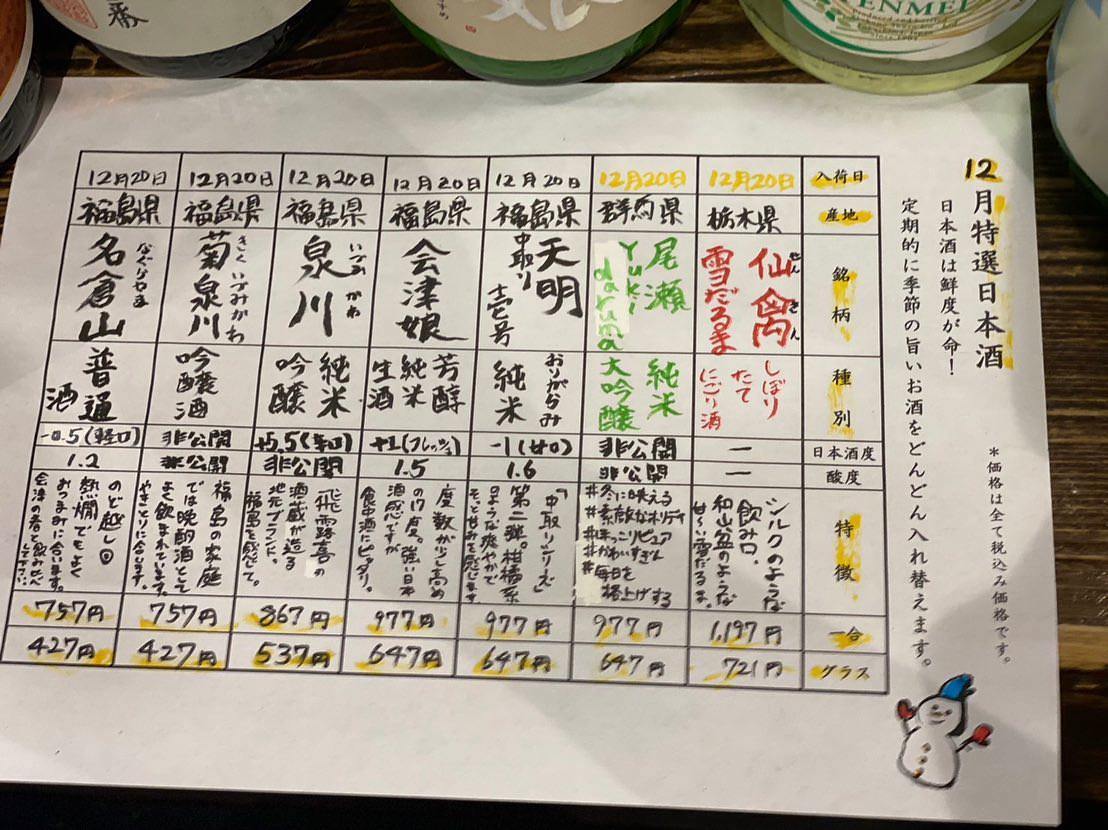 番
ENMEI
Since 1901
12月特選日本酒
日本酒は鮮度が命！
定期的に季節の旨いお酒をどんどん入れ替えます。
＊価格は全て税込み価格です。
入荷日
産地
銘柄
種別
日本酒度
酸度
特徴
一合
グラス
12月20日
栃木県
仙禽
せんきん
雪だるま
しぼり
たて
にごり酒
ー
ー
シルクのような
飲み口。
和山盆のような
甘〜い雪だるま。
1,197円
721円
12月20日
群馬県
尾瀬
Yuki
daruma
純米
大吟醸
非公開
非公開
#冬に映える
#素敵なホリデイ
#ほっこりピュア
#かわいすぎん
#毎日を
格上げする
977円
647円
12月20日
福島県
天明
中取り
壱号
おりがらみ
純米
-1(甘口)
1.6
「中取りシリーズ」
第二弾。柑橘系
のような爽やかで
そっと甘みを感じます
977円
647円
12月20日
福島県
会津娘
芳醇
純米
生酒
+1(フレッシュ)
1.5
度数が少し高め
の17度。強い日本
酒感ですが
食中酒にピッタリ。
977円
647円
12月20日
福島県
泉川
いづみかわ
純米
吟醸
+5.5(辛口)
非公開
「飛露喜」の
酒蔵が造る
地元ブランド。
福島を感じて。
867円
537円
12月20日
福島県
菊泉川
きくいづみかわ
吟醸酒
非公開
非公開
福島の家庭
では晩酌酒として
よく飲まれています。
やきとりに合います。
757円
427円
12月20日
福島県
名倉山
なぐらやま
普通
酒
-0.5(軽口)
1.2
のど越し◎
熱燗でもよく
おつまみに合います。
会津の春と飲みたい
757円
427円